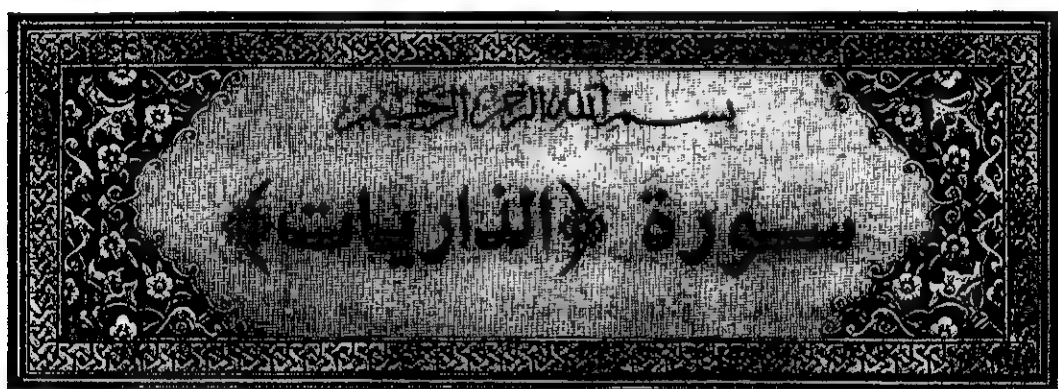 بسم الله الرحمن الرحيم
سورة ﴿الذاريات﴾